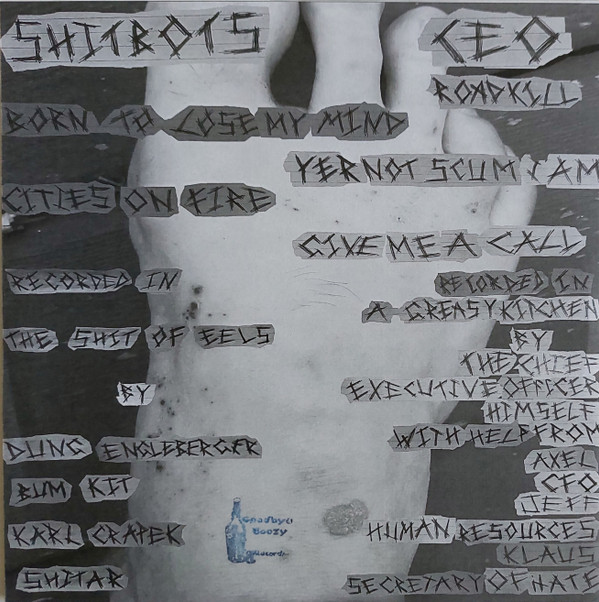 SHITBOTS
BORN TO LOSE MY MIND
CITIES ON FIRE
RECORDED IN
THE SHIT OF EELS
BY
DUNG ENGLEBERGER
BUM KIT
KARL CRAPEK
SHITAR
CEO
ROADKILL
YER NOT SCUM I AM
GIVE ME A CALL
RECORDED IN
A GREASY KITCHEN
BY
THE CHIEF
EXECUTIVE OFFICER
HIMSELF
WITH HELP FROM
AXEL
CFO
JEFF
HUMAN RESOURCES
KLAUS
SECRETARY OF HATE
Goodbye
Boozy
Records